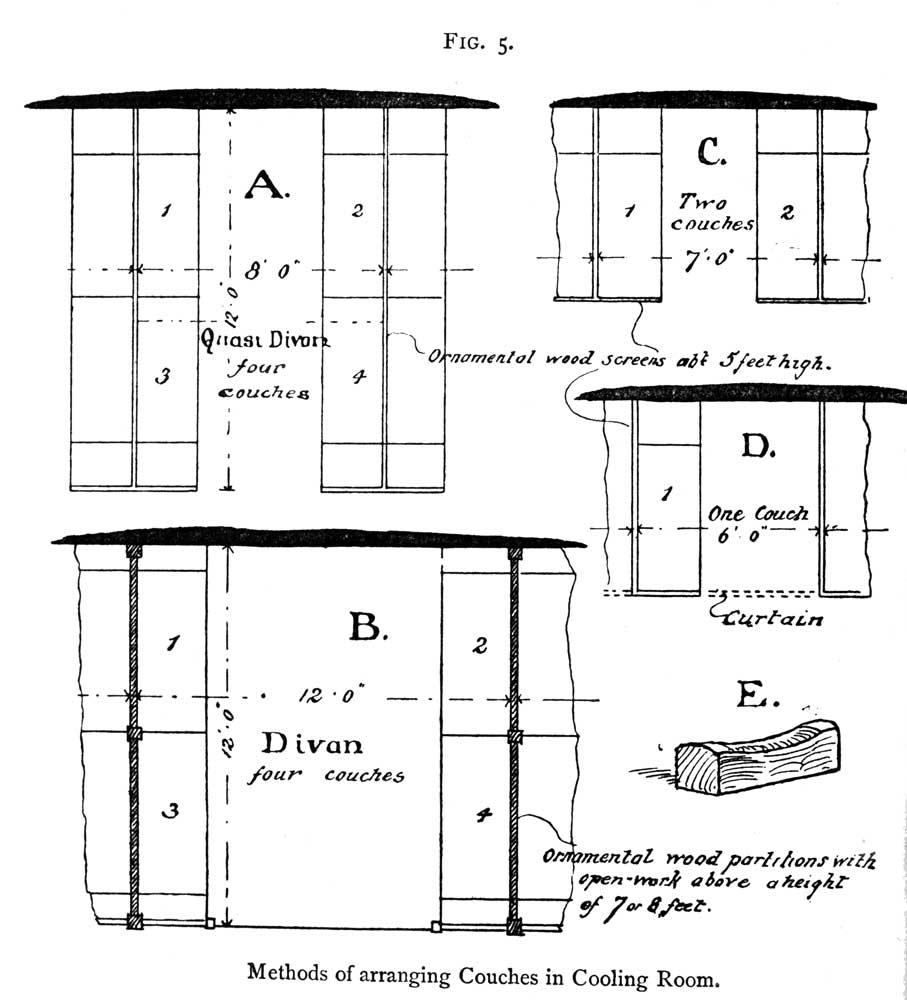 FIG. 5.
A.
1
2
8' 0"
12'.0"
Quasi Divan
four
couches
3
4
C.
Two
couches
1
2
7'.0"
Ornamental wood screens abt 5 feet high.
D.
1
One Couch
6'.0"
Curtain
B.
1
2
12'.0"
12'.0"
Divan
four couches
3
4
E.
Ornamental wood partitions with
open-work above a height
of 7 or 8 feet.
Methods of arranging Couches in Cooling Room.